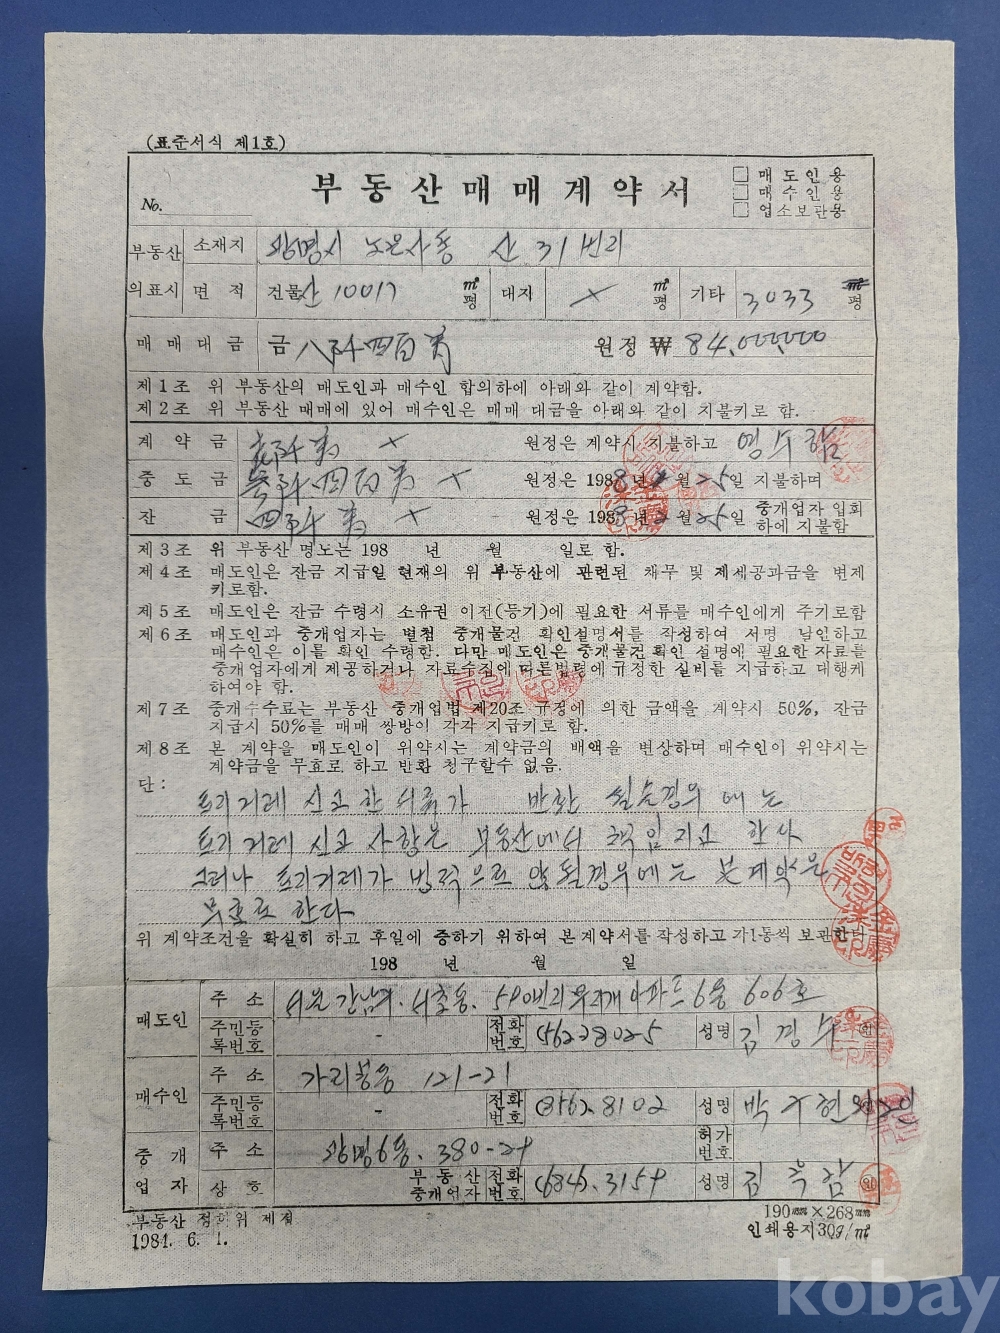 (표준서식 제1호)
부동산매매계약서
No.
□ 매도인용
□ 매수인용
□ 업소보관용
부동산 의표시
소재지 광명시 노온사동 산 31번지
면적 건물 산 10017 ㎡ 평 대지 × ㎡ 평 기타 3033 ㎡ 평
매매대금 금 八阡四百萬 원정 ₩ 84,000,000
제1조 위 부동산의 매도인과 매수인 합의하에 아래와 같이 계약함.
제2조 위 부동산 매매에 있어 매수인은 매매 대금을 아래와 같이 지불키로 함.
계약금 壱阡萬 × 원정은 계약시 지불하고 영수함
중도금 阡四百萬 × 원정은 1988년 월 25일 지불하며
잔금 四阡萬 × 원정은 1988년 2월 25일 중개업자 입회하에 지불함
제3조 위 부동산 명도는 198 년 월 일로 함.
제4조 매도인은 잔금 지급일 현재의 위 부동산에 관련된 채무 및 제세공과금을 변제
키로함.
제5조 매도인은 잔금 수령시 소유권 이전(등기)에 필요한 서류를 매수인에게 주기로함
제6조 매도인과 중개업자는 별첨 중개물건 확인설명서를 작성하여 서명 날인하고
매수인은 이를 확인 수령함. 다만 매도인은 중개물건 확인 설명에 필요한 자료를
중개업자에게 제공하거나 자료수집에 따른 법령에 규정한 실비를 지급하고 대행케
하여야 함.
제7조 중개수수료는 부동산 중개업법 제20조 규정에 의한 금액을 계약시 50%, 잔금
지급시 50%를 매매 쌍방이 각각 지급키로 함.
제8조 본 계약을 매도인이 위약시는 계약금의 배액을 변상하며 매수인이 위약시는
계약금을 무효로 하고 반환 청구할수 없음.
단:
토지거래 신고한 서류가 반환 될경우에는
토지거래 신고 사항은 부동산에서 책임지고 한다
그러나 토지거래가 법적으로 안될경우에는 본계약은
무효로 한다
위 계약조건을 확실히 하고 후일에 증하기 위하여 본계약서를 작성하고 각1통씩 보관한다
198 년 월 일
매도인
주소 서울 강남구. 서초동. 590번지 무지개 아파트 6동 606호
주민등록번호 - 전화번호 (562)2 8025 성명 김경수 ㊞
매수인
주소 가리봉동 121-21
주민등록번호 - 전화번호 (856)2.8102 성명 박수현 외2인
중개업자
주소 광명6동. 380-24 허가번호
상호 부동산중개업자 전화번호 (684).3154 성명 김 ㊞
부동산 정 위 제정
1984. 6. 1.
190㎜×268㎜
인쇄용지30g/㎡
kobay